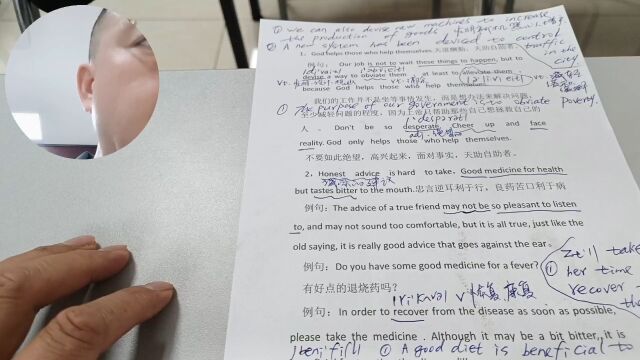 ① we can also devise new machines to increase
the production of goods
② A new system has been deviced to control
traffic
in the
city
1. God helps those who help themselves.天道酬勤,天助自助者。
例句: Our job is not to wait these things to happen, but to
devise a way to obviate them at least to alleviate them
because God helps those who help themselves.
我们的工作并不是坐等事情发生,而是想办法来解决问题,
① The purpose of our government is to obviate poverty.
至少减轻问题的程度,因为上帝只帮助那些自己想拯救自己的
人。Don't be so desperate. Cheer up and face
adj.
reality. God only helps those who help themselves.
不要如此绝望,高兴起来,面对事实,天助自助者。
2, Honest advice is hard to take, Good medicine for health
but tastes bitter to the mouth.忠言逆耳利于行,良药苦口利于病
例句:The advice of a true friend may not be so pleasant to listen
to, and may not sound too comfortable, but it is all true, just like the
old saying, it is really good advice that goes against the ear.
例句:Do you have some good medicine for a fever?
有好点的退烧药吗?
still take
① her time
recover
v 恢复 康复
例句: In order to recover from the disease as soon as possible,
please take the medicine . Although it may be a bit bitter, it is
① A good diet is beneficial to